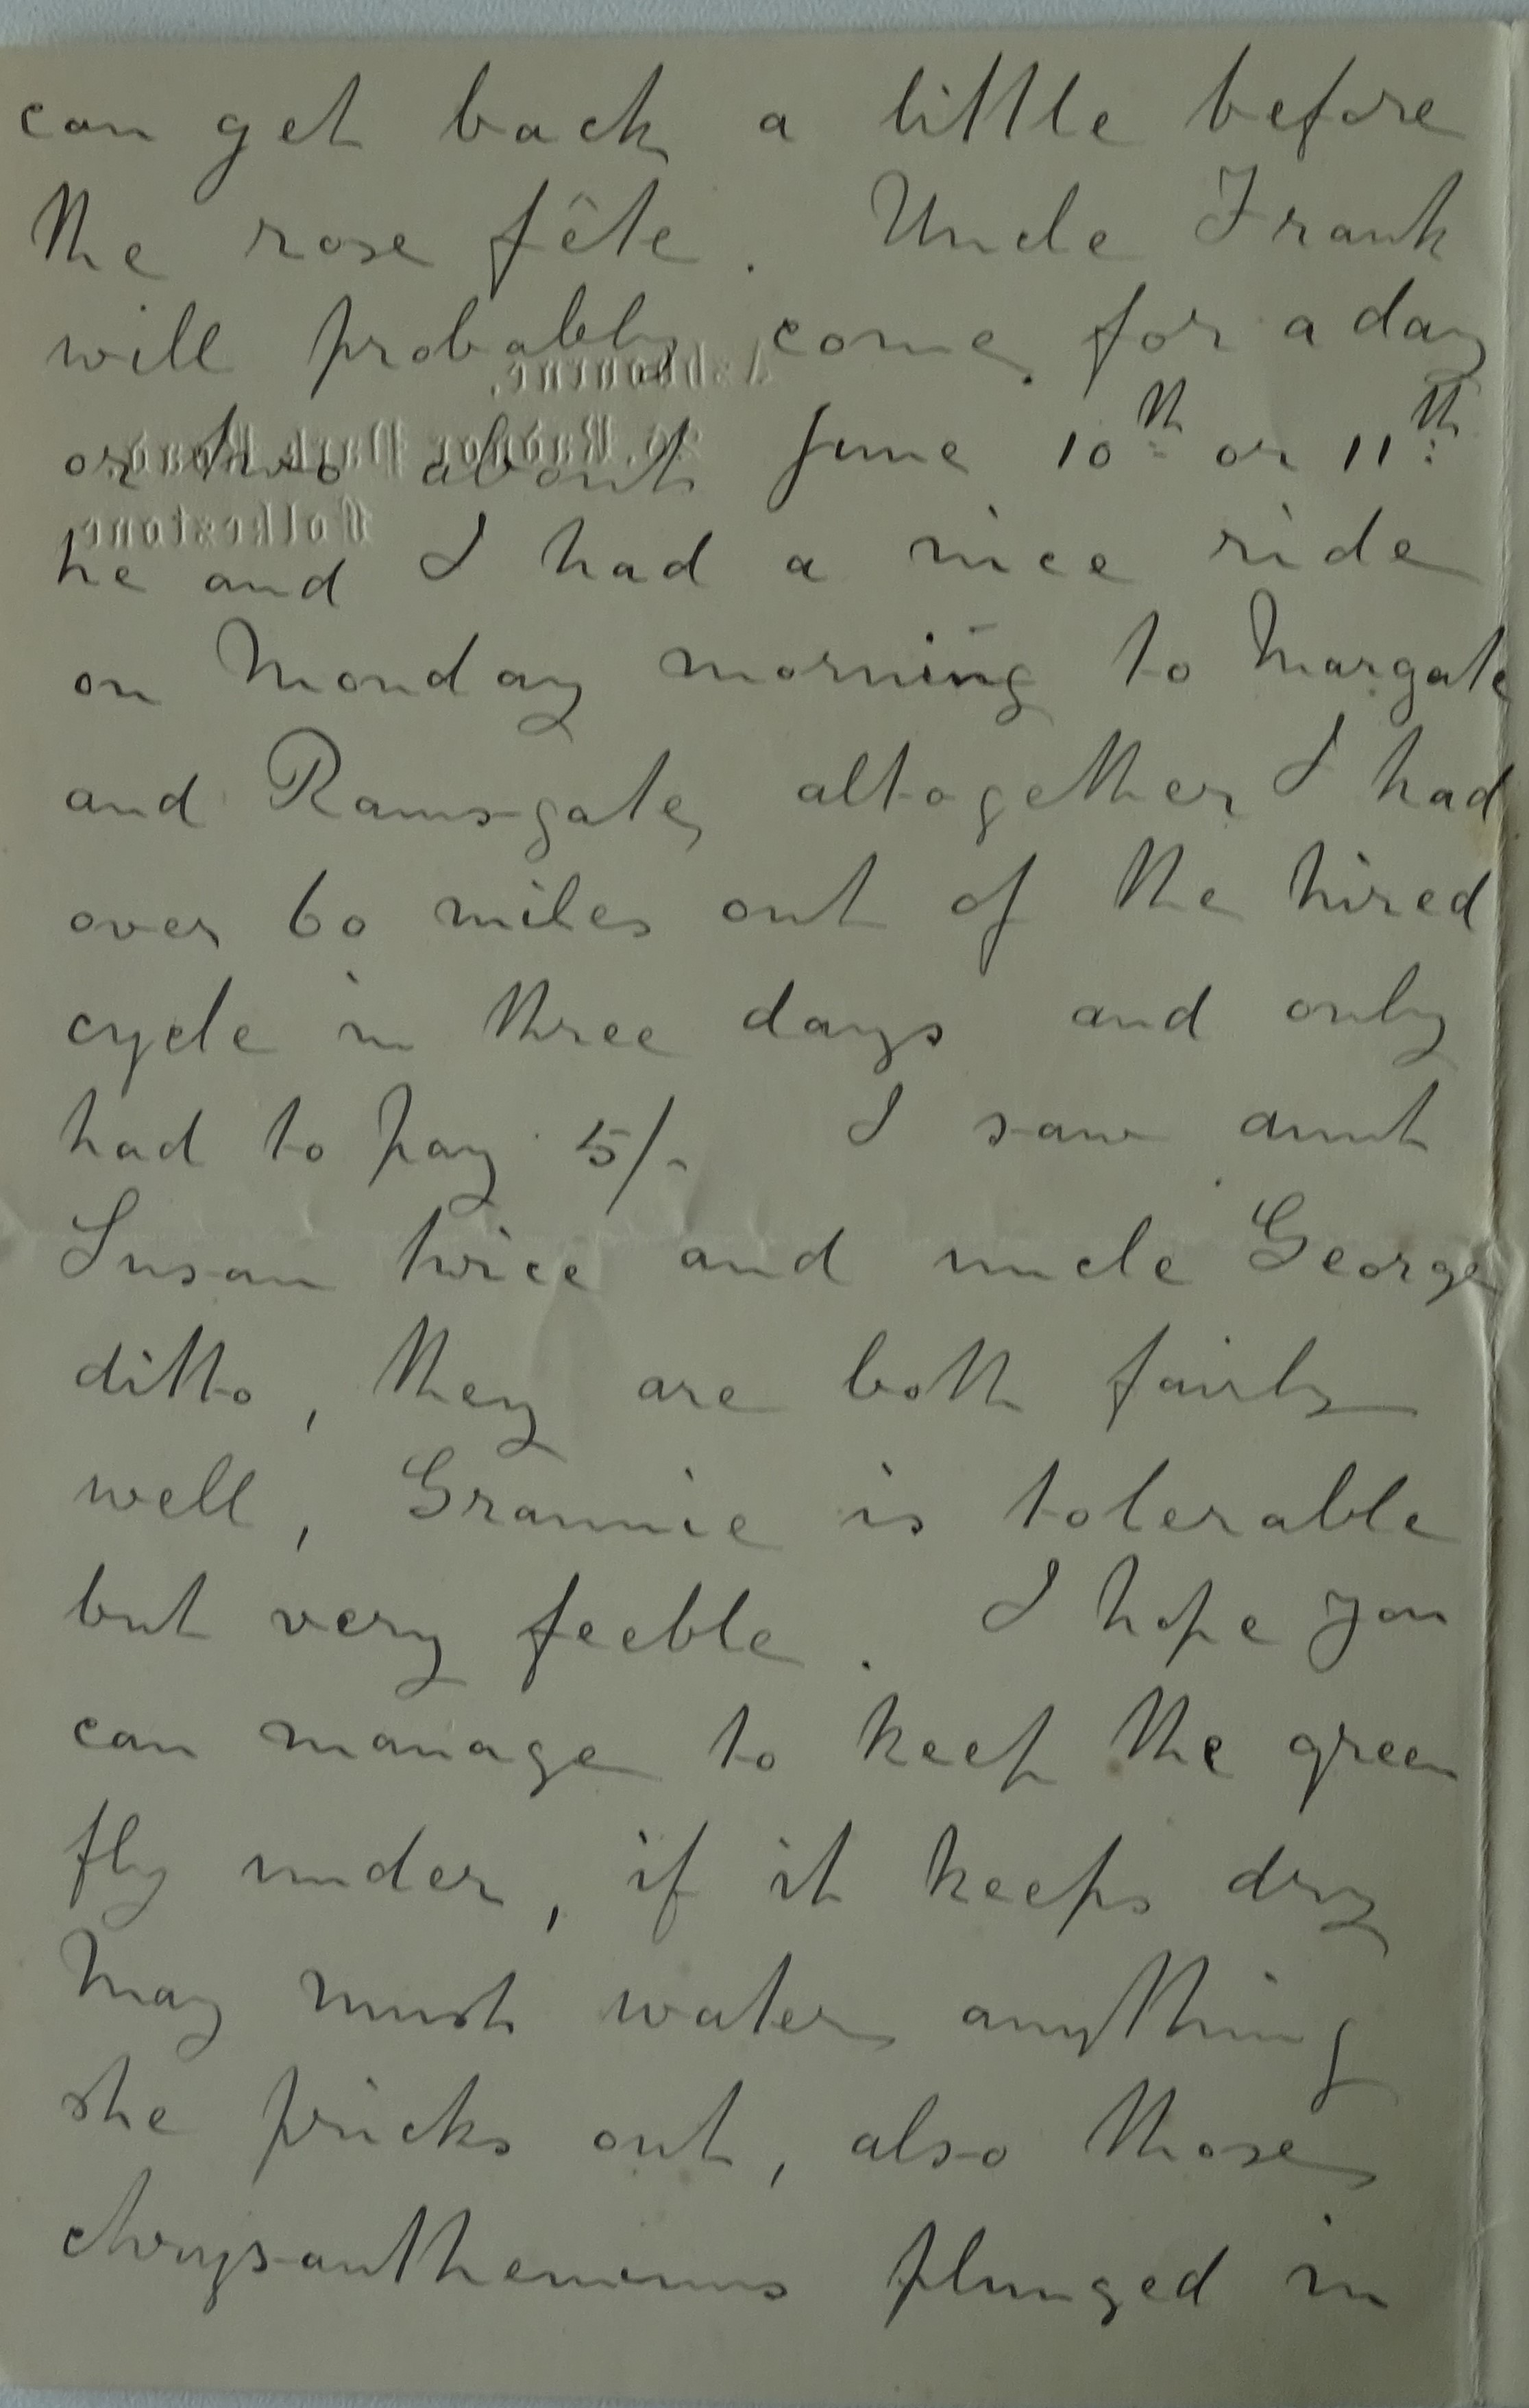 can get back a little before
the rose fête. Uncle Frank
will probably come for a day
Ashbourne,
or two about June 10th or 11th:
26, Radnor Park Road,
he and I had a nice ride
Folkestone
on Monday morning to Margate
and Ramsgate, altogether I had
over 60 miles out of the hired
cycle in three days and only
had to pay 5/- I saw aunt
Susan twice and uncle George
ditto, they are both fairly
well, Grannie is tolerable
but very feeble. I hope you
can manage to keep the green
fly under, if it keeps dry
May must water anything
she pricks out, also those
chrysanthemums plunged in